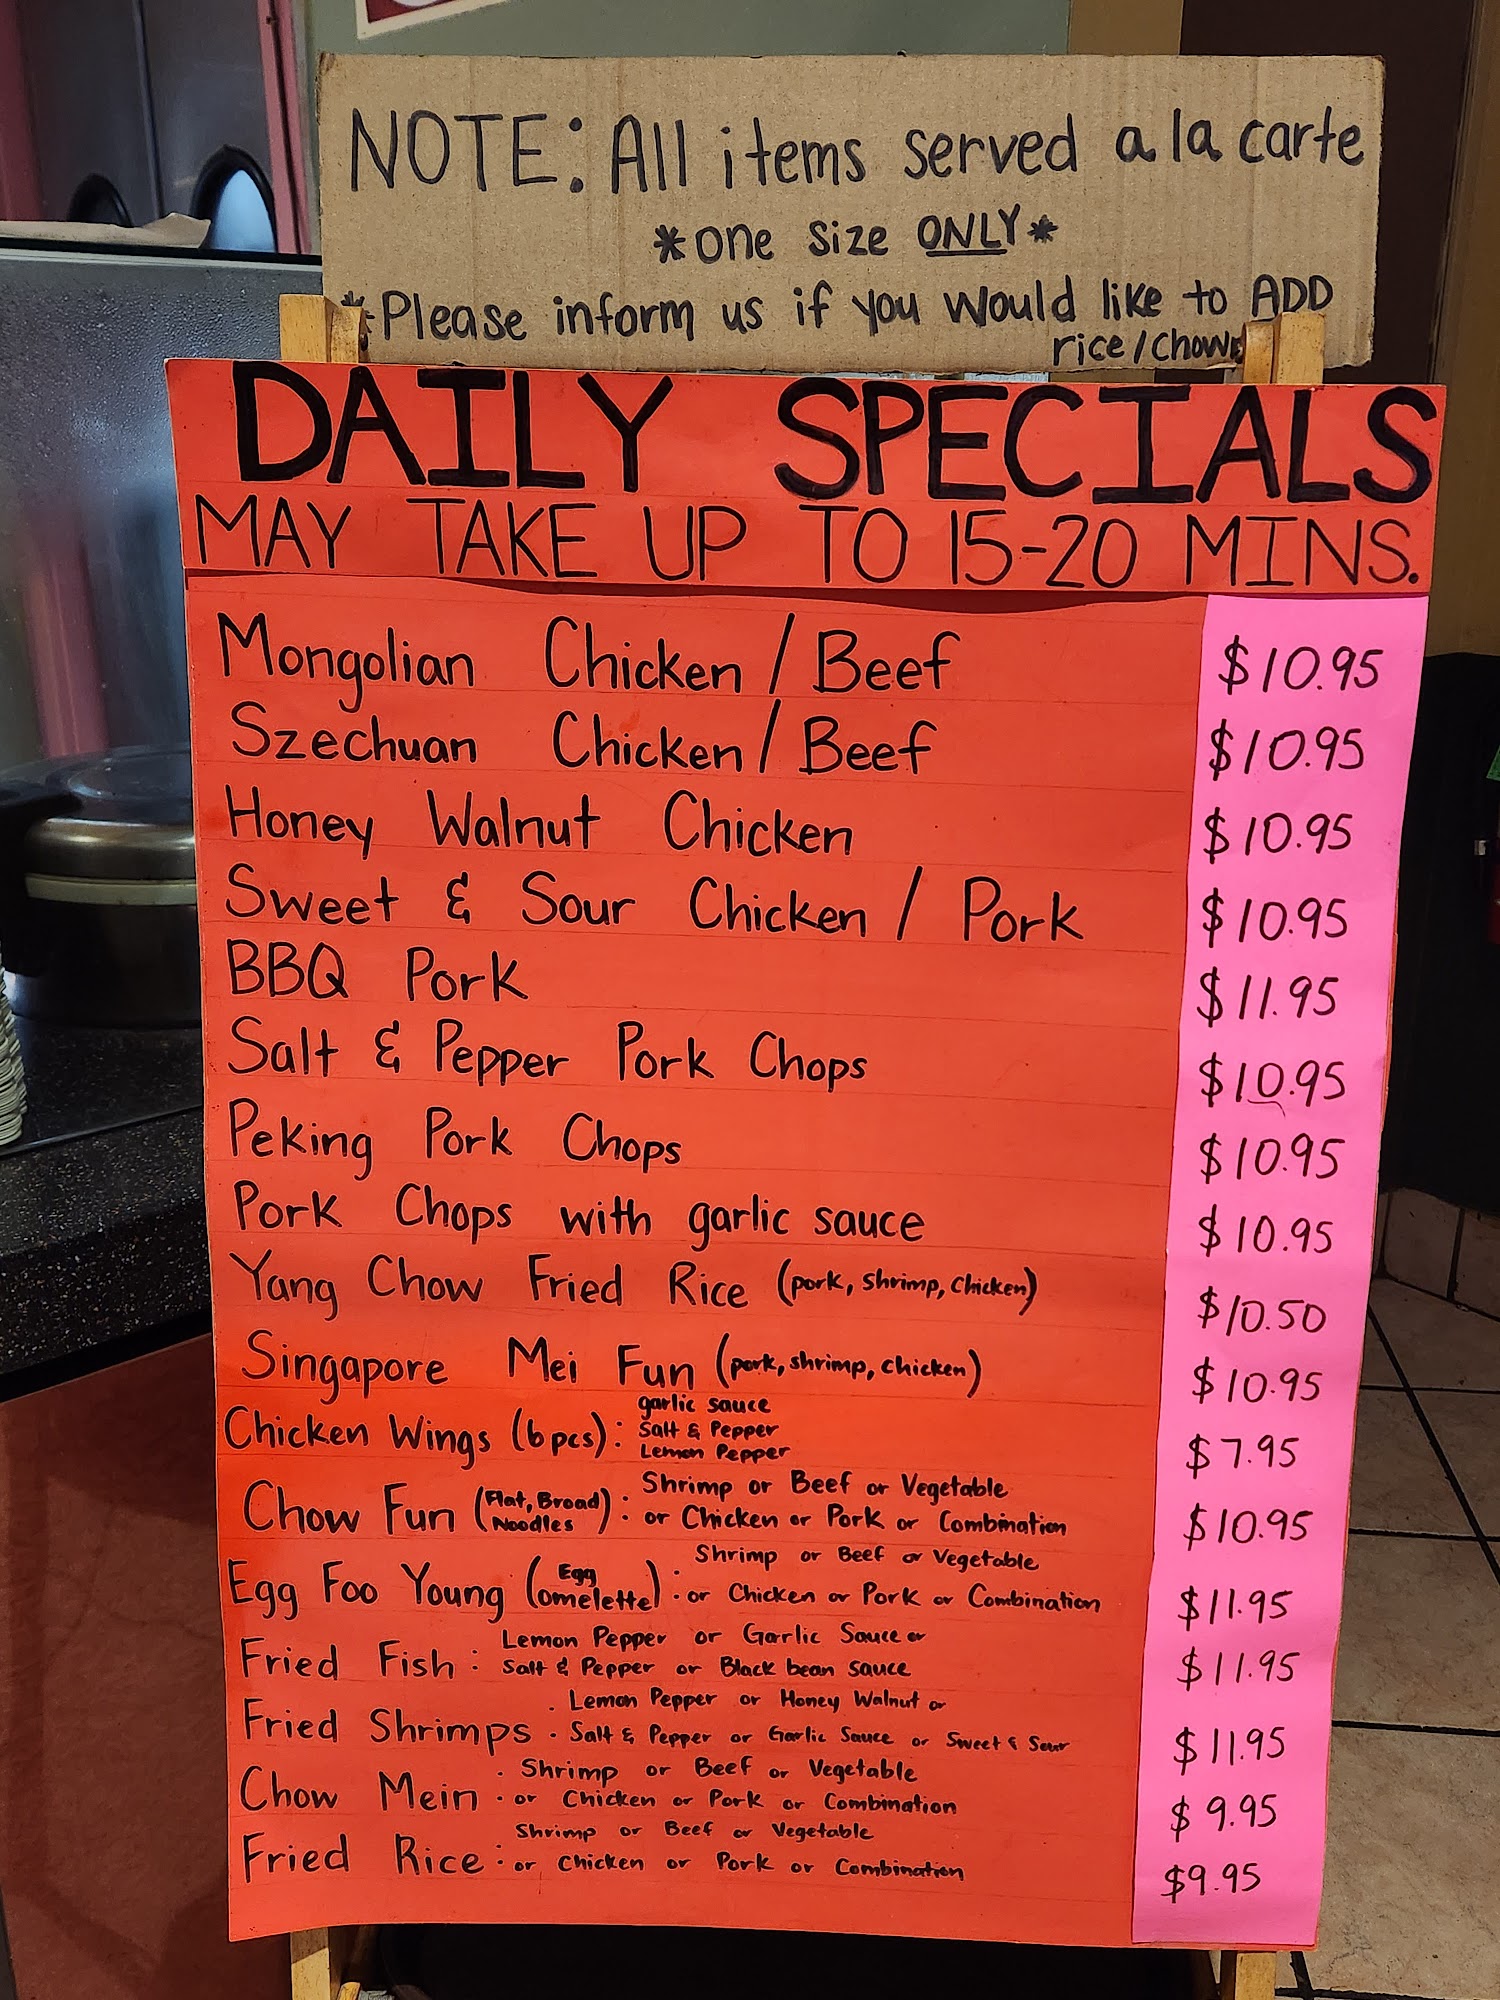 NOTE: All items served a la carte
*one size ONLY*
*Please inform us if you would like to ADD
rice/chow
DAILY SPECIALS
MAY TAKE UP TO 15-20 MINS.
Mongolian Chicken / Beef $10.95
Szechuan Chicken / Beef $10.95
Honey Walnut Chicken $10.95
Sweet & Sour Chicken / Pork $10.95
BBQ Pork $11.95
Salt & Pepper Pork Chops $10.95
Peking Pork Chops $10.95
Pork Chops with garlic sauce $10.95
Yang Chow Fried Rice (pork, shrimp, chicken) $10.50
Singapore Mei Fun (pork, shrimp, chicken) $10.95
Chicken Wings (6pcs): garlic sauce
Salt & Pepper
Lemon Pepper
$7.95
Chow Fun (Flat, Broad Noodles): Shrimp or Beef or Vegetable
or Chicken or Pork or Combination
$10.95
Egg Foo Young (Egg omelette): Shrimp or Beef or Vegetable
or Chicken or Pork or Combination
$11.95
Fried Fish: Lemon Pepper or Garlic Sauce or
Salt & Pepper or Black bean sauce
$11.95
Fried Shrimps: Lemon Pepper or Honey Walnut or
Salt & Pepper or Garlic Sauce or Sweet & Sour
$11.95
Chow Mein: Shrimp or Beef or Vegetable
or Chicken or Pork or Combination
$9.95
Fried Rice: Shrimp or Beef or Vegetable
or Chicken or Pork or Combination
$9.95